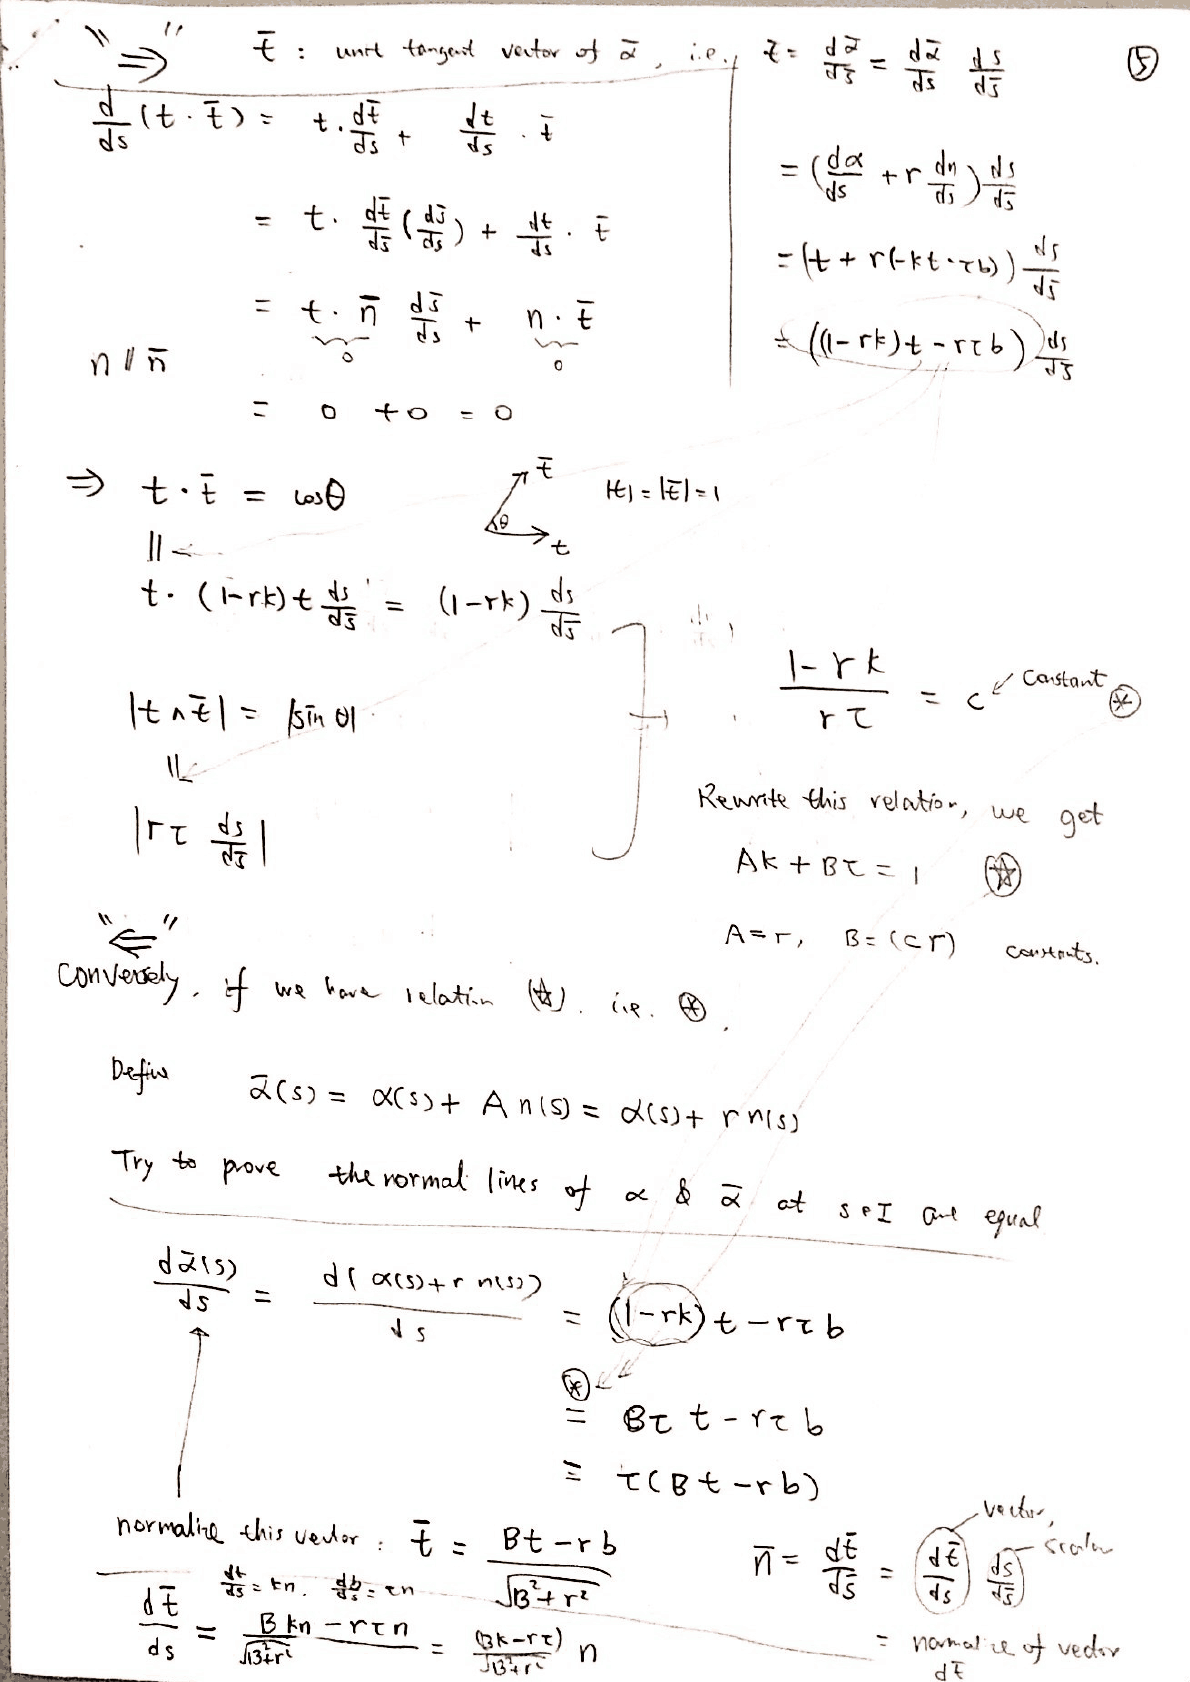 "⇒" t̄ : unit tangent vector of ᾱ, i.e., t̄ = dᾱ/ds̄ = dᾱ/ds ds/ds̄ ⑤
= (dα/ds + r dn/ds) ds/ds̄
= (t + r(-kt - τb)) ds/ds̄
= ((1-rk)t - rτb) ds/ds̄
d/ds (t · t̄) = t · dt̄/ds + dt/ds · t̄
= t · dt̄/ds̄ (ds̄/ds) + dt/ds · t̄
= t · n̄ ds̄/ds + n · t̄
0 0
n // n̄
= 0 + 0 = 0
⇒ t · t̄ = cosθ t̄ θ t |t| = |t̄| = 1
||
t · (1-rk) t ds/ds̄ = (1-rk) ds/ds̄
|t ∧ t̄| = |sin θ|
||
|rτ ds/ds̄|
(1-rk)/(rτ) = c constant ⊛
Rewrite this relation, we get
Ak + Bτ = 1 ☆
A = r, B = (cr) constants.
"⇐"
Conversely, if we have relation (☆). i.e. ⊛.
Define ᾱ(s) = α(s) + A n(s) = α(s) + r n(s)
Try to prove the normal lines of α & ᾱ at s∈I are equal
dᾱ(s)/ds = d(α(s) + r n(s))/ds = (1-rk) t - rτ b
⊛
= Bτ t - rτ b
= τ(Bt - rb)
normalize this vector : t̄ = (Bt - rb)/√(B²+r²)
dt/ds = kn. db/ds = τn
dt̄/ds = (Bkn - rτn)/√(B²+r²) = (Bk-rτ)/√(B²+r²) n
n̄ = dt̄/ds̄ = dt̄/ds ds/ds̄ vector, scalar
= normalize of vector
dt̄